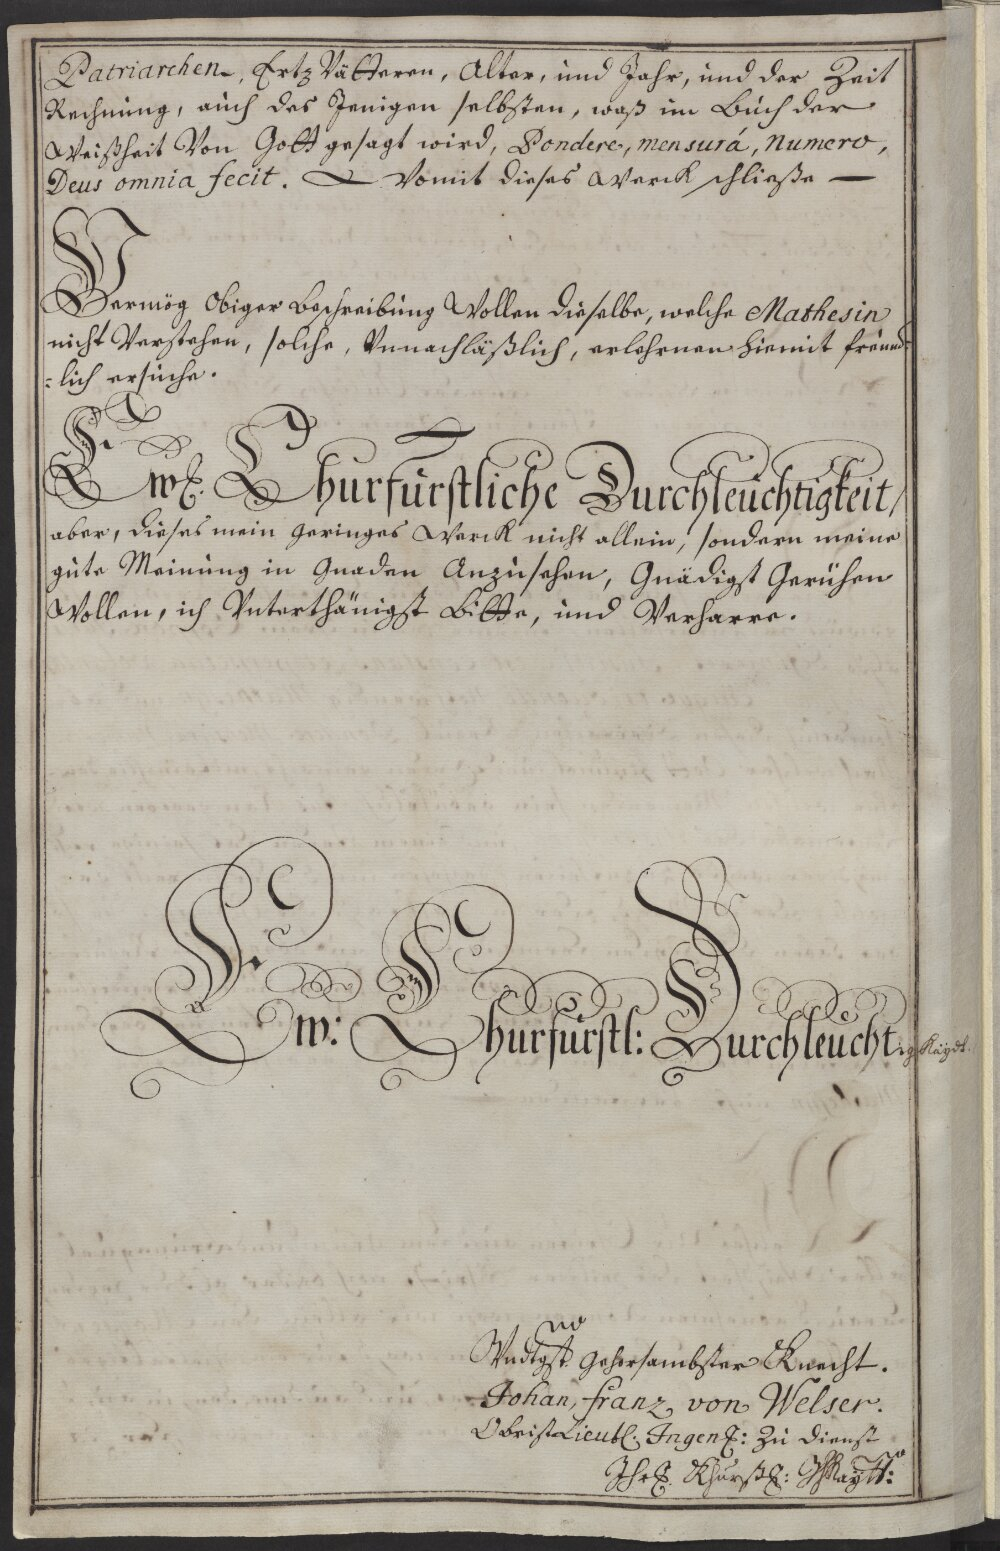 Patriarchen, Ertz Vätteren, Alter, und Jahr, und der Zeit
Rechnung, auch des Jenigen selbsten, waß im Buch der
Weißheit Von Gott gesagt wird, Pondere, mensurá, Numero,
Deus omnia fecit. Vomit dieses Werck schließe —
Vermög Obiger beschreibung Wollen dieselbe, welche Mathesin
nicht Verstehen, solche, Vnnachläßlich, erlehrnen hiemit freünd-
=lich ersuche.
Ew. Churfürstliche Durchleuchtigkeit,
aber, dieses mein geringes Werck nicht allein, sondern meine
gute Meinung in Gnaden Anzusehen, Gnädigst Geruhen
Wollen, ich Vnterthänigst bitte, und Verharre.
Ew: Churfürstl: Durchleuchtig Kaydt.
Vndtgst gehorsambster Knecht.
Johan, franz von Welser.
Obrist Lieutl. Ingen: zu dienst